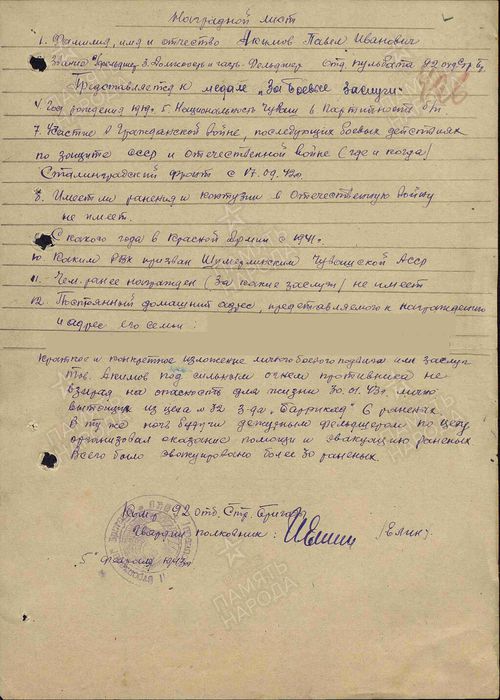 Наградной лист
1. Фамилия, имя и отчество Акимов Павел Иванович
2. Звание 3. Должность и часть Фельдшер Отд. пульбата 92 отд. стр. бр
Представляется к медале „За боевые заслуги"
4. Год рождения 1919г. 5. Национальность Чуваш 6. Партийность б/п
7. Участие в Гражданской войне, последующих боевых действиях
по защите СССР и отечественной войне (где и когда)
Сталинградский фронт с 17.09.42г
8. Имеет ли ранения и контузии в Отечественную войну
не имеет.
9. С какого года в Красной Армии с 1941г
10. Каким РВК призван Шумерлинским Чувашской АССР
11. Чем ранее награжден (за какие заслуги) не имеет
12. Постоянный домашний адрес, представляемого к награждению
и адрес его семьи:
Краткое и конкретное изложение личного боевого подвига или заслуг
Тов. Акимов под сильным огнем противника не
взирая на опасность для жизни 30.01.43г. лично
вытощил из цеха № 32 з-да „Баррикад" 6 раненых.
В ту же ночь будучи дежурным фельдшером по цеху
организовал оказание помощи и эвакуацию раненых
Всего было эвокуировано более 30 раненых.
Ком-р 92 отд. Стр. Бригады
Гвардии полковник: /Елин/
„5" февраля 1943г
ПАМЯТЬ
НАРОДА